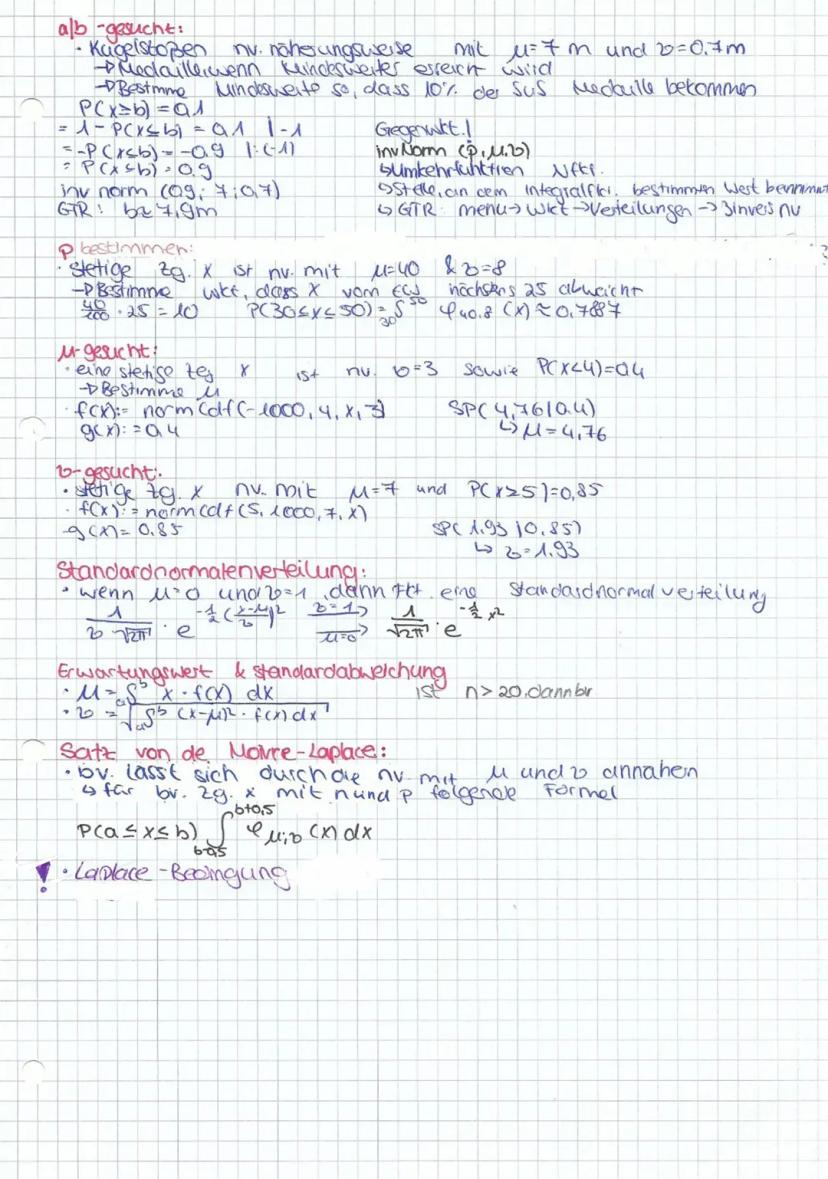 a/b -gesucht:
· Kugelstoßen nv. näherungsweise mit μ=7m und σ=0.7m
→ Medaille, wenn Mindestweite erreicht wird
→ Bestimme Mindestweite so, dass 10% der SuS Medaille bekommen
P(X≥b) = 0,1
= 1-P(X≤b) = 0,1 |-1 Gegenwkt.!
= -P(X≤b) = -0,9 |:(-1) invNorm (p,μ,σ)
= P(X≤b) = 0,9 ↳ Umkehrfunktion Nfkt.
inv norm (0,9; 7; 0,7) ↳ Stelle, an dem Integralfkt. bestimmten Wert bekommt
GTR: b≈7,9m ↳ GTR: menu → Wkt → Verteilungen → 3 invers nv
p bestimmen:
· Stetige Zg. X ist nv. mit μ=40 & σ=8
→ Bestimme Wkt, dass X vom EW höchstens 25 abweicht
· 25 = 10 P(30≤X≤50) = ∫ 30 50 φ40,8 (x) ≈ 0,7887
μ-gesucht:
· eine stetige X ist nv. σ=3 sowie P(X<4)=0,4
→ Bestimme μ
· f(x):= normCdf(-1000, 4, x, 3) SP( 4,76|0,4)
g(x):=0,4 ↳ μ=4,76
σ-gesucht:
· stetige Zg. X nv. mit μ=7 und P(X≥5)=0,85
· f(x):= normCdf(5, 1000, 7, x)
g(x)= 0.85 SP( 1.93 |0.85)
↳ σ=1.93
Standardnormalenverteilung:
· wenn μ=0 und σ=1, dann Fkt. eine Standardnormalverteilung
1/(σ√2π) · e^(-1/2((x-μ)/σ)²) σ=1→ μ=0→ 1/√2π · e^(-1/2 x²)
Erwartungswert & Standardabweichung
· μ = a∫b x · f(x) dx ist n>20, dann bv
· σ = √(a∫b (x-μ)² · f(x) dx)
Satz von de Moivre-Laplace:
· bv. lässt sich durch die nv. mit μ und σ annähen
↳ für bv. Zg. X mit n und p folgende Formel
P(a≤x≤b) ∫ b-0,5 b+0,5 φμ;σ (x) dx
! · Laplace-Bedingung